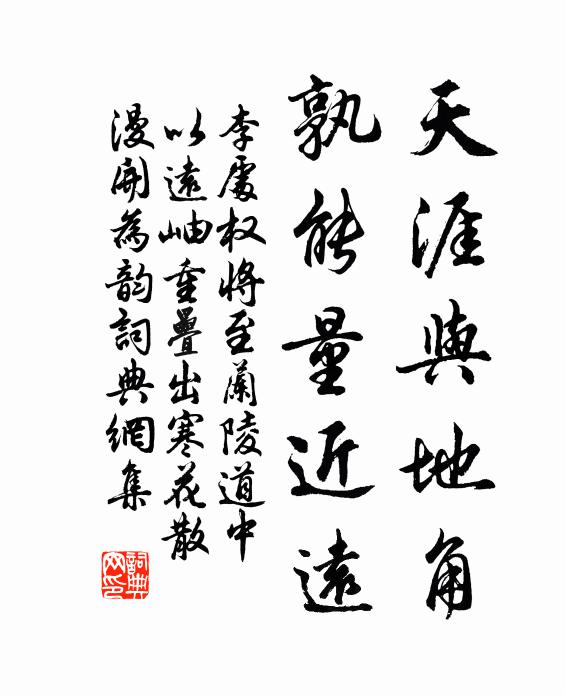 天涯與地角
孰能量近遠
李處权將至蘭陵道中
以遠岫重疊出寒花散
漫開為韵詞典網集
詞典
网印